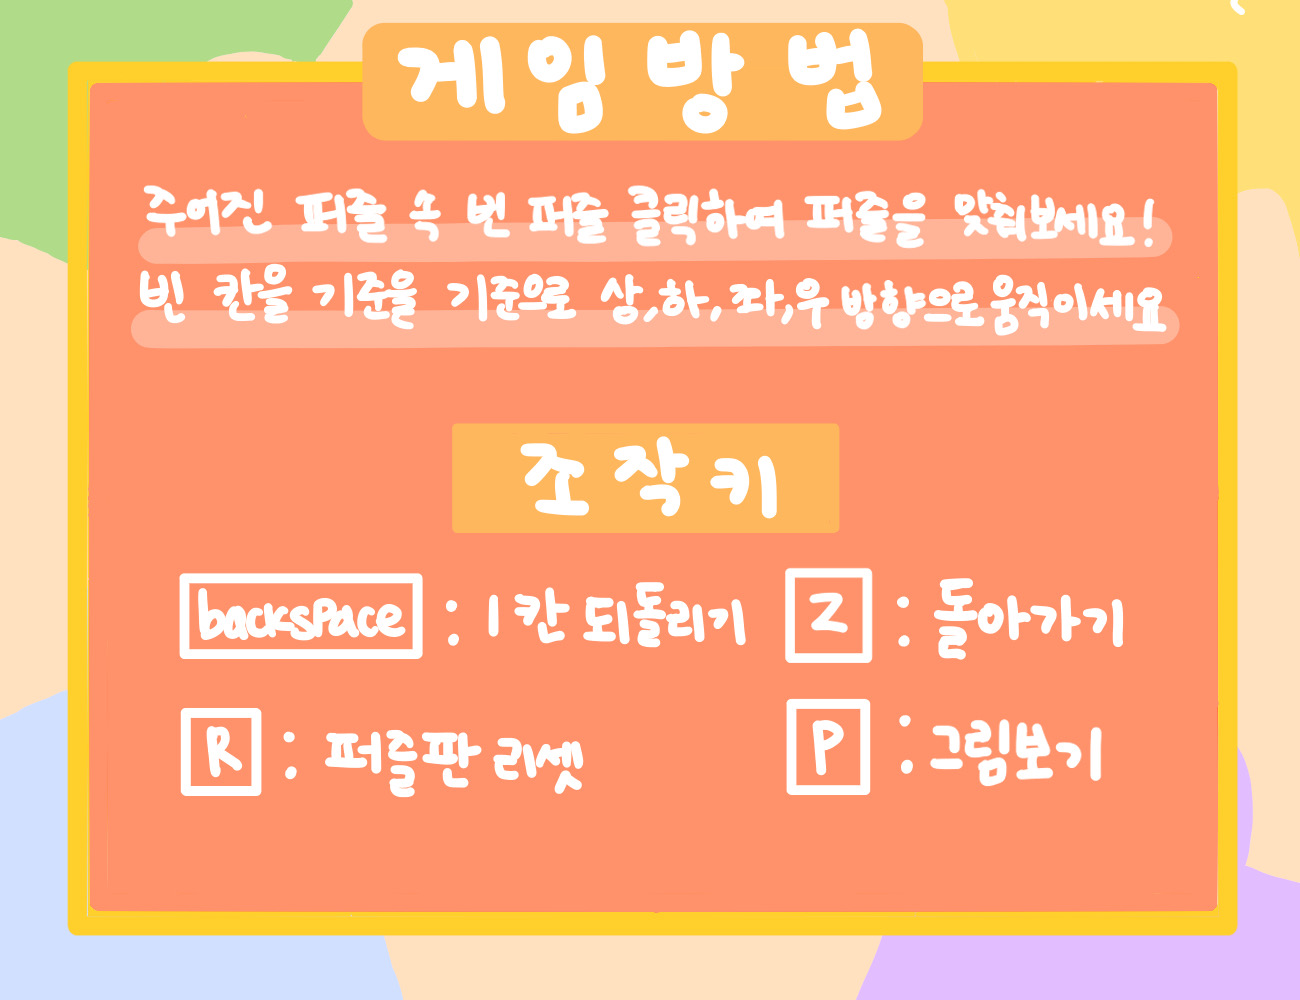 게임 방법
주어진 퍼즐 속 빈 퍼즐 클릭하여 퍼즐을 맞춰보세요!
빈 칸을 기준을 기준으로 상,하, 좌,우 방향으로 움직이세요
조작키
backspace : 1칸 되돌리기 Z : 돌아가기
R : 퍼즐판 리셋 P : 그림보기